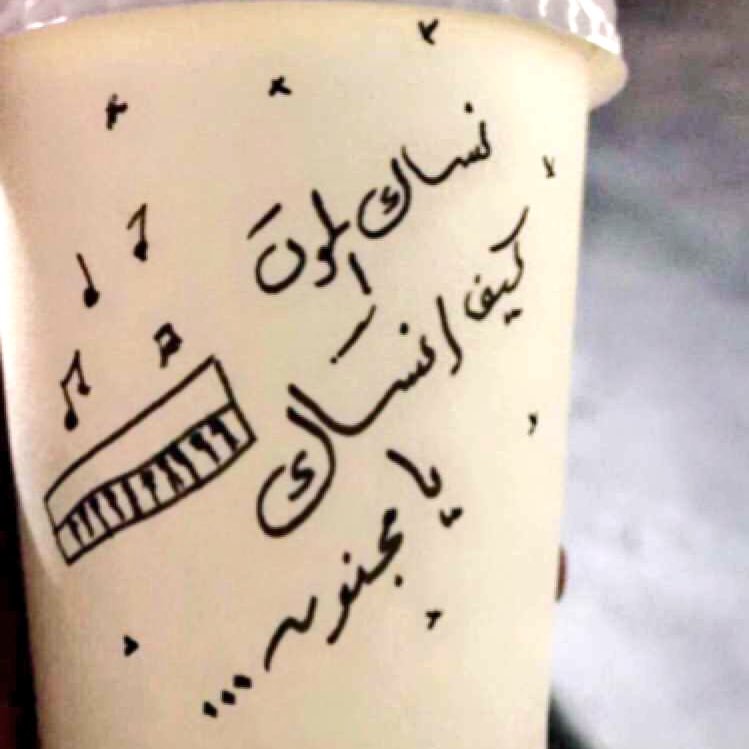 نساك الموت
كيف انساك
يا مجنون ...